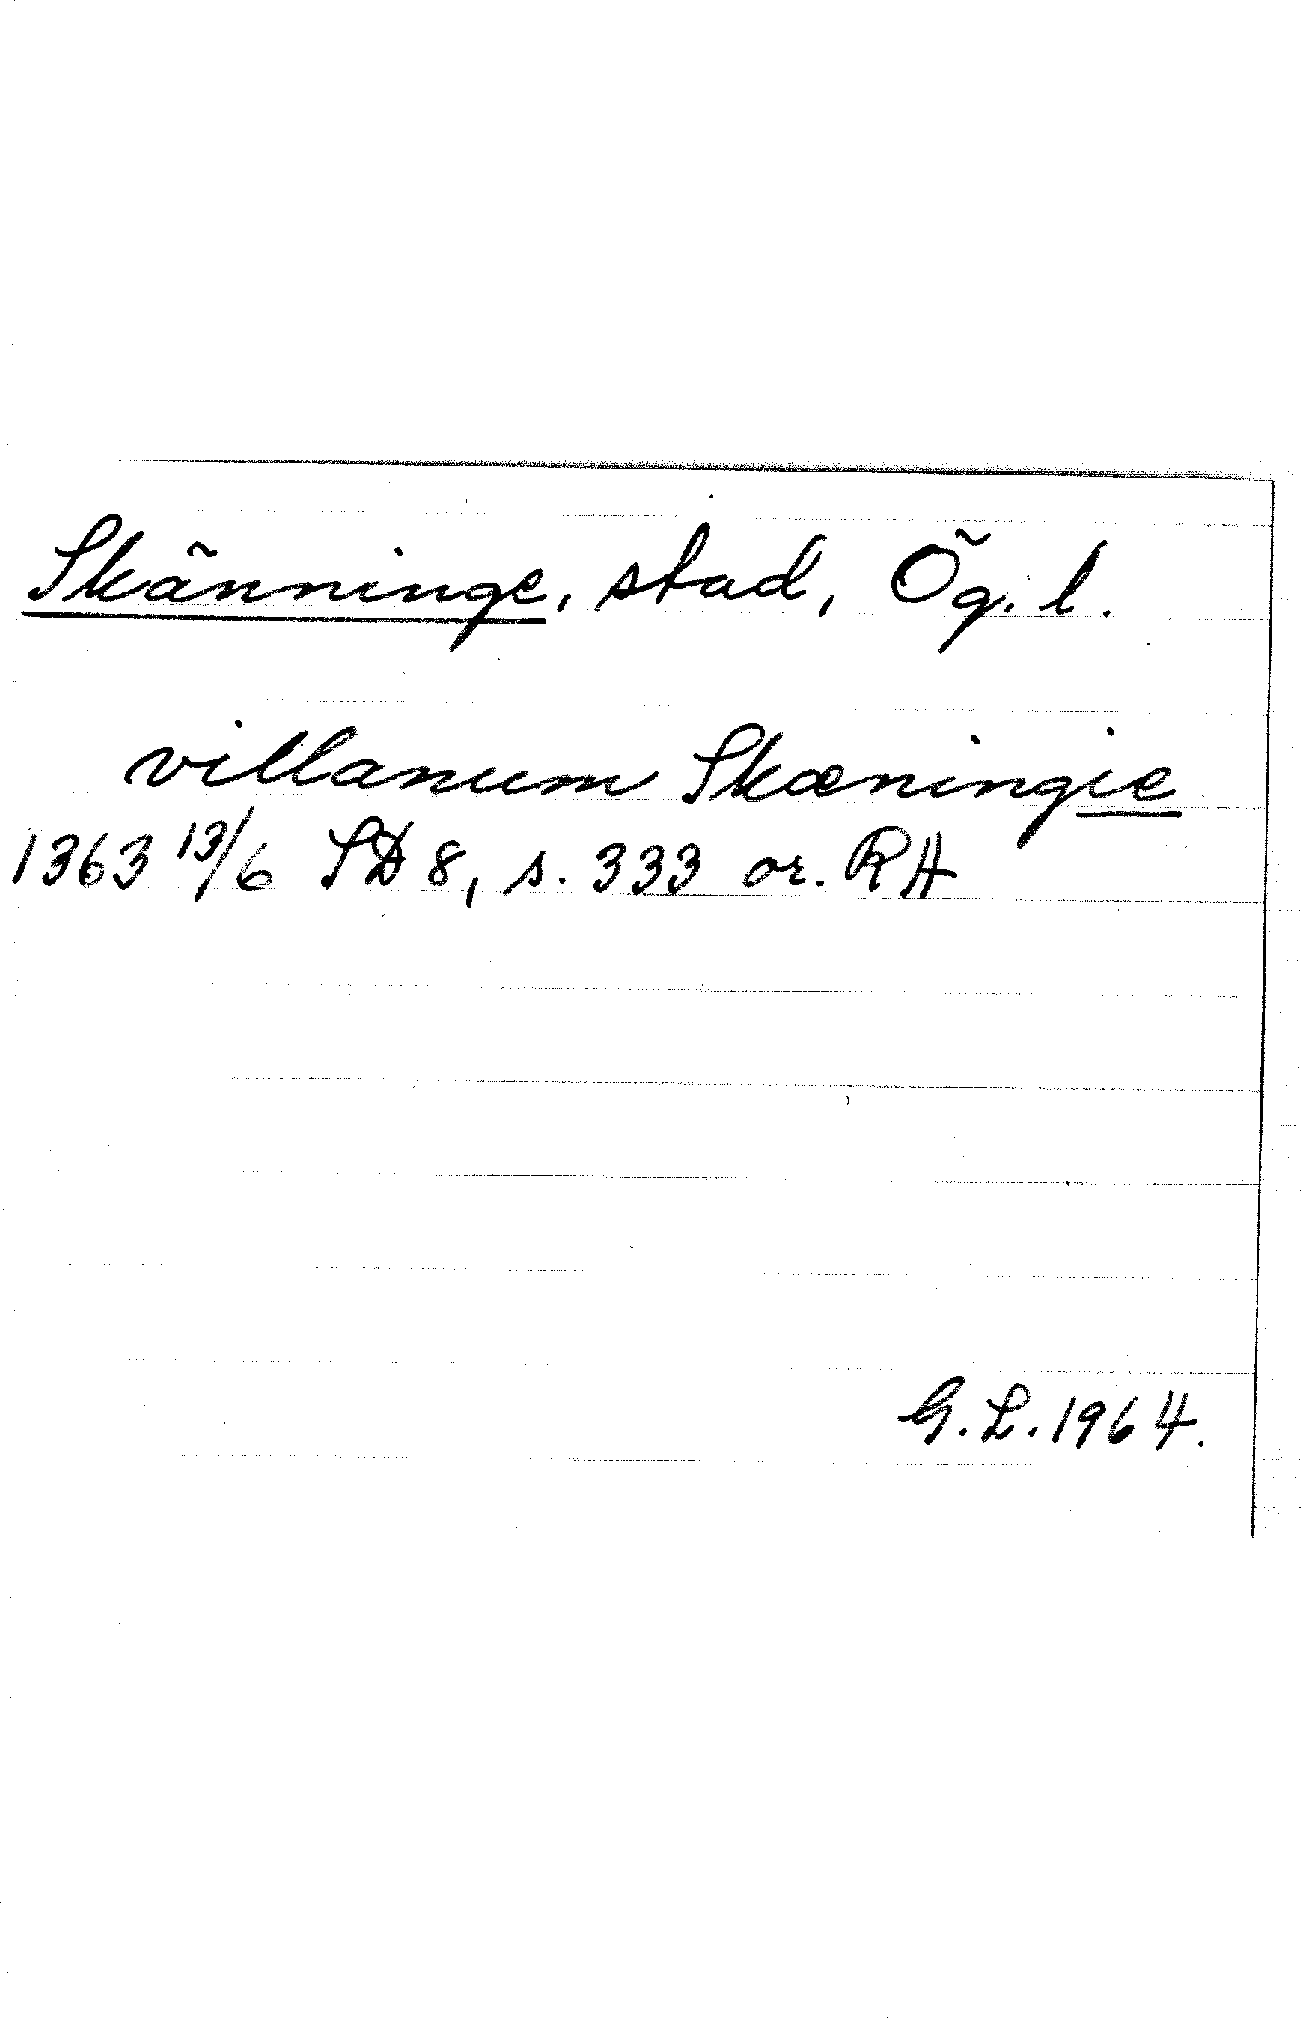 Skänninge, stad, Ög. l.
villanum Skæningie
1363 13/6 SD 8, s. 333 or. RA
G.L. 1964.